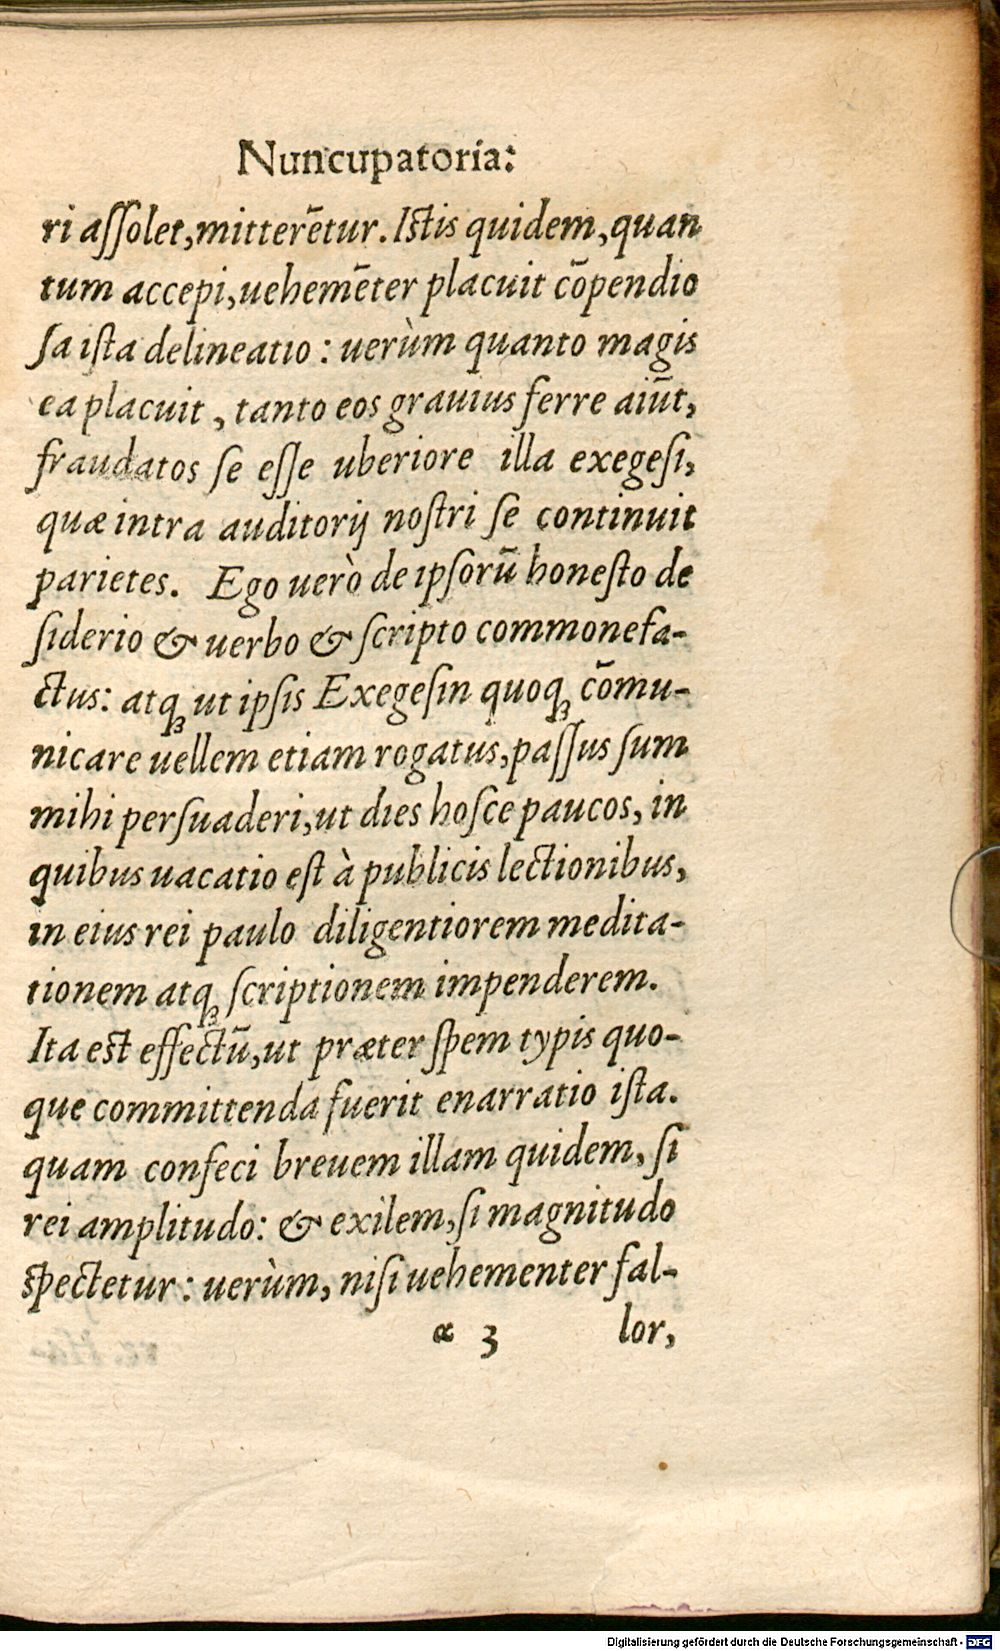 Nuncupatoria:
ri aſſolet,mitterētur. Iſtis quidem,quan
tum accepi,uehemēter placuit cōpendio
ſa iſta delineatio : uerùm quanto magis
ea placuit , tanto eos grauius ferre aiūt,
fraudatos ſe eſſe uberiore illa exegeſi,
quæ intra auditorij noſtri ſe continuit
parietes. Ego uerò de ipſorū honeſto de
ſiderio & uerbo & ſcripto commonefa-
ctus: atq́ꝫ ut ipſis Exegeſin quoqꝫ cōmu-
nicare uellem etiam rogatus,paſſus ſum
mihi perſuaderi,ut dies hoſce paucos, in
quibus uacatio eſt à publicis lectionibus,
in eius rei paulo diligentiorem medita-
tionem atqꝫ ſcriptionem impenderem.
Ita eſt effectū,ut præter ſpem typis quo-
que committenda fuerit enarratio iſta.
quam confeci breuem illam quidem, ſi
rei amplitudo: & exilem,ſi magnitudo
ſpectetur : uerùm, niſi uehementer fal-
α 3 lor,
Digitalisierung gefördert durch die Deutsche Forschungsgemeinschaft - DFG